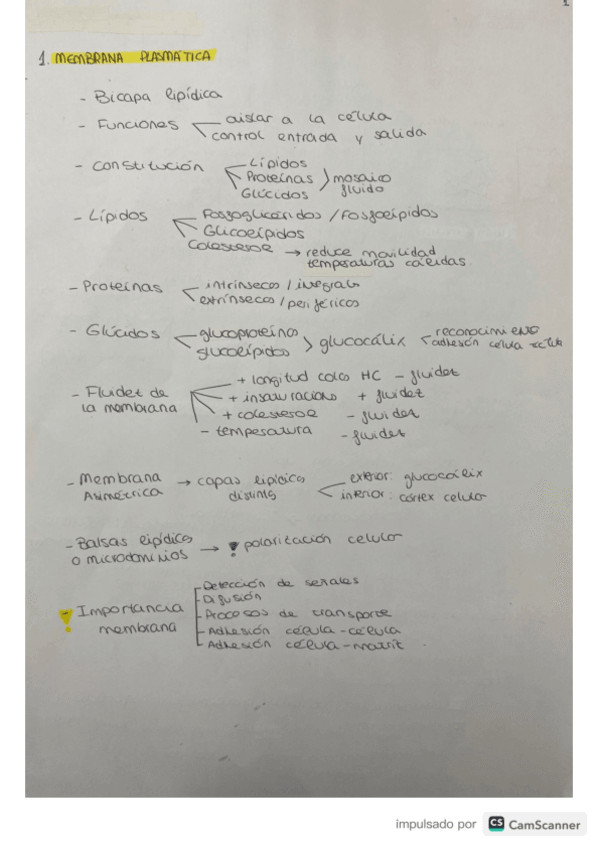 1
1. MEMBRANA PLASMÁTICA
- Bicapa lipídica
- Funciones
aislar a la célula
control entrada y salida
- Constitución
Lípidos
Proteínas
Glúcidos
mosaico
fluido
- Lípidos
Fosfoglicéridos / Fosfolípidos
Glicolípidos
Colesterol → reduce movilidad
temperaturas cálidas
- Proteínas
intrínsecos / integrales
extrínsecos / periféricos
- Glúcidos
glucoproteínas
glucolípidos
glucocálix
reconocimiento
adhesión célula célula
- Fluidez de
la membrana
+ longitud colas HC - fluidez
+ insaturaciones + fluidez
+ colesterol - fluidez
- temperatura - fluidez
- Membrana
Asimétrica
→ capas lipídicas
distintas
exterior: glucocálix
interior: córtex celular
- Balsas lipídicas
o microdominios
→ ! polarización celular
! Importancia
membrana
- Detección de señales
- Difusión
- Procesos de transporte
- Adhesión célula - célula
- Adhesión célula - matriz
impulsado por CS CamScanner